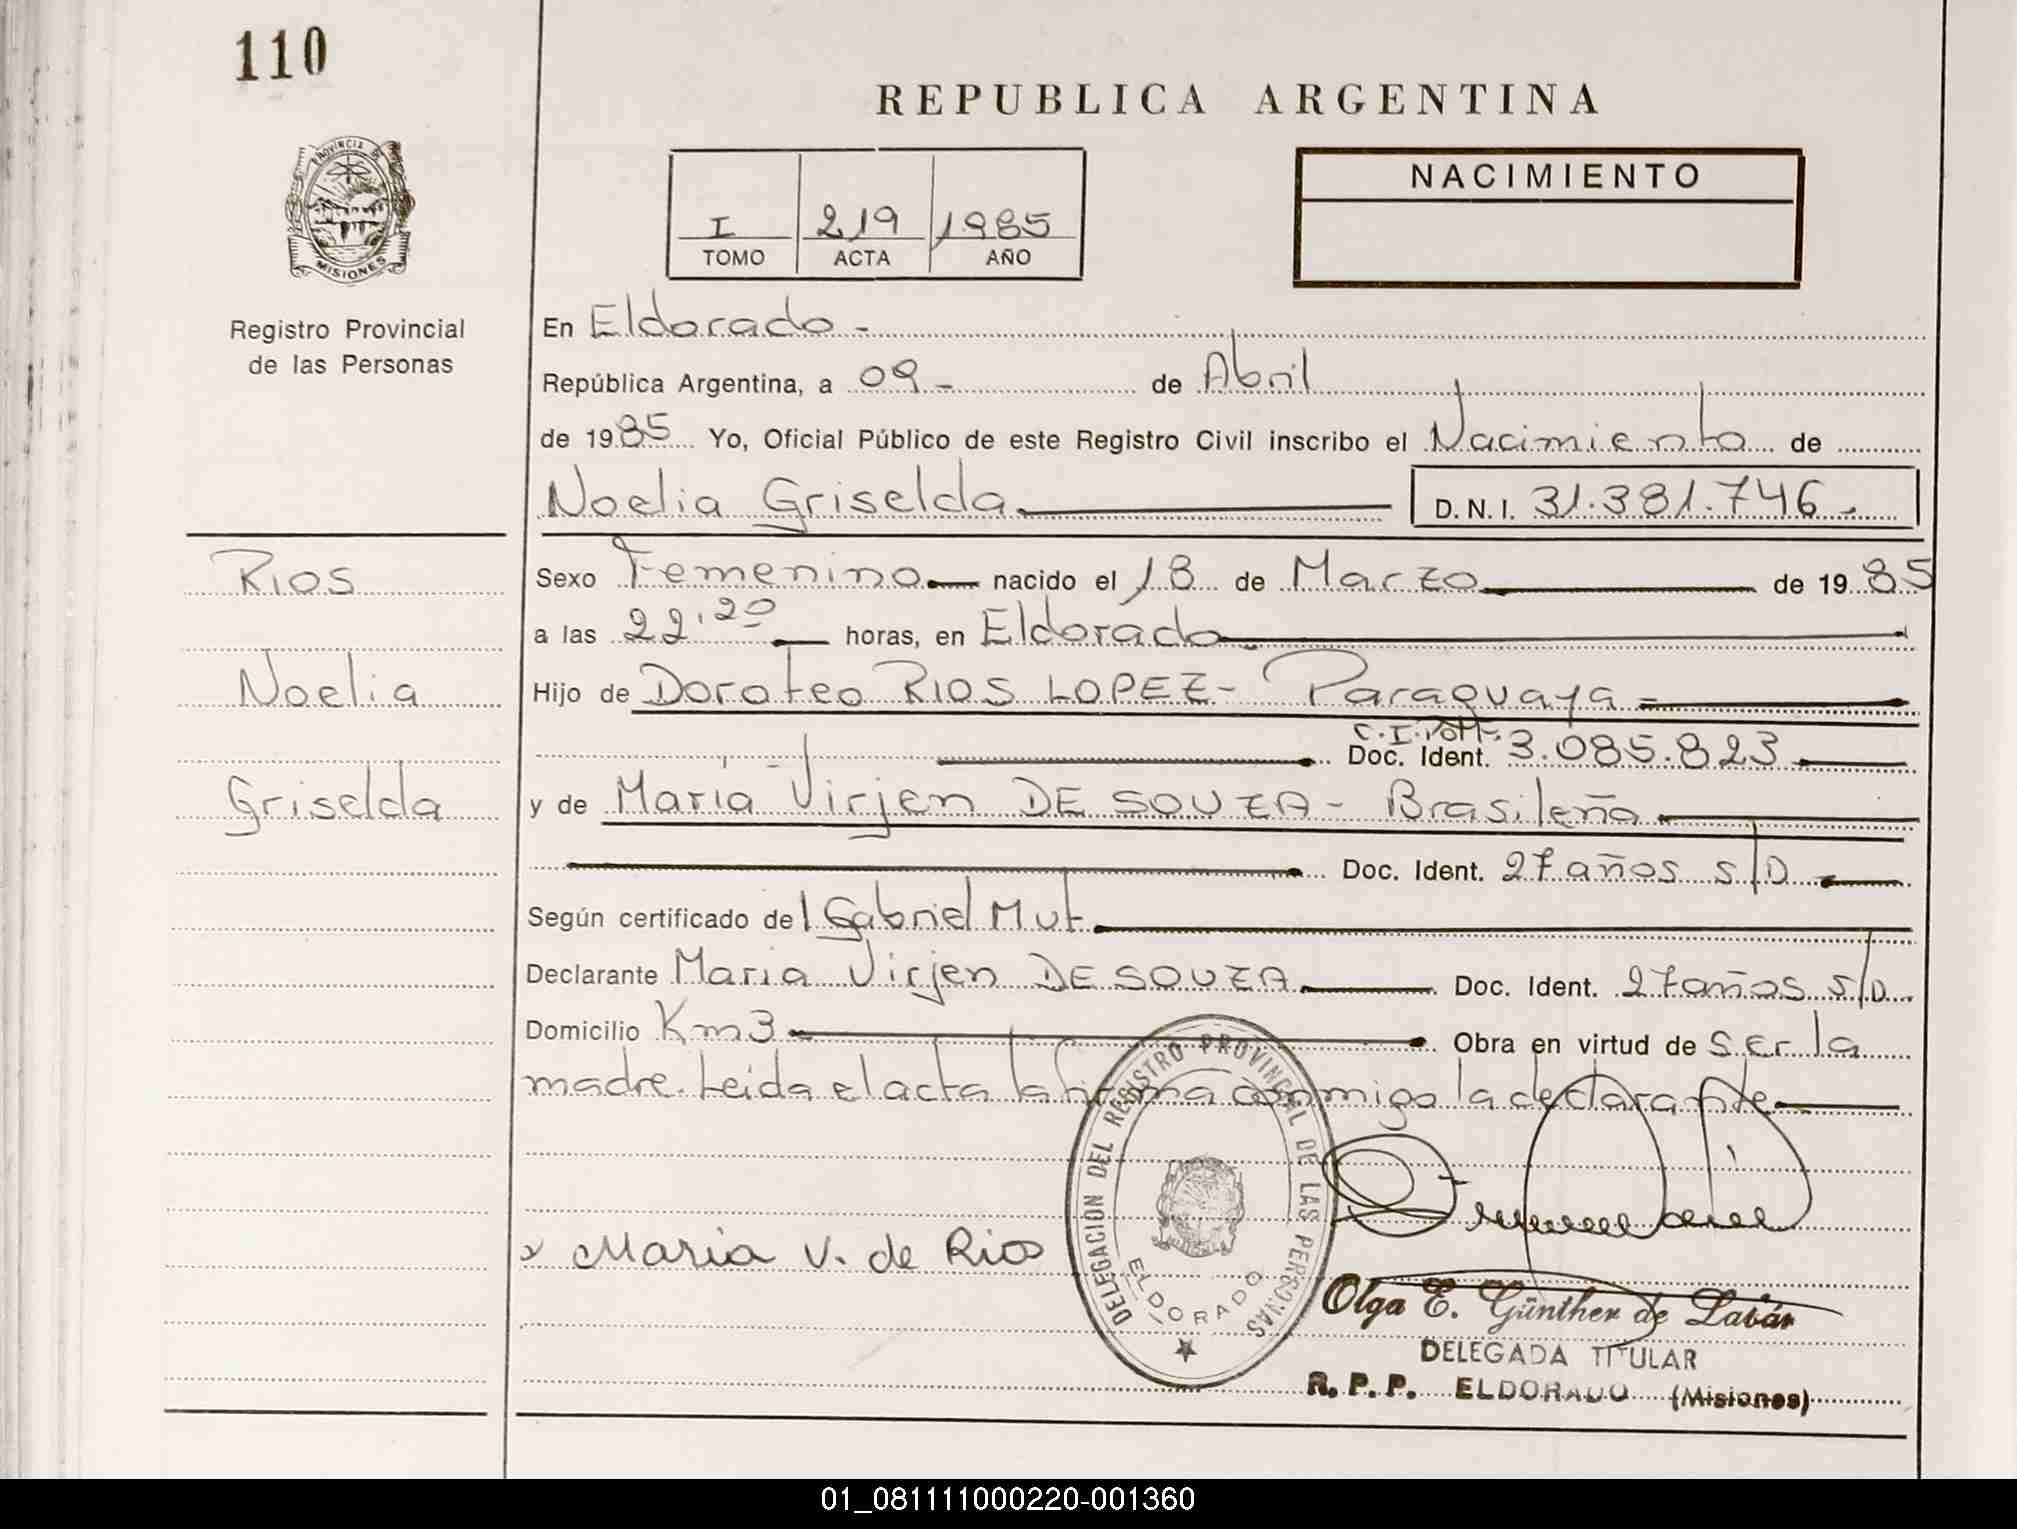 110
REPUBLICA ARGENTINA
PROVINCIA DE
MISIONES
Registro Provincial
de las Personas
I 219 1985
TOMO ACTA AÑO
NACIMIENTO
En Eldorado -
República Argentina, a 09 - de Abril
de 1985 Yo, Oficial Público de este Registro Civil inscribo el Nacimiento de
Noelia Griselda D.N.I. 31.381.746.-
Rios
Noelia
Griselda
Sexo Femenino nacido el 18 de Marzo de 1985
a las 22,20 horas, en Eldorado
Hijo de Doroteo RIOS LOPEZ - Paraguaya =
C.I.
Doc. Ident. 3.085.823
y de María Virjen DE SOUZA - Brasileña
Doc. Ident. 27 años s/D
Según certificado del Gabriel Mut
Declarante Maria Virjen DE SOUZA Doc. Ident. 27 años s/D
Domicilio Km 3 Obra en virtud de ser la
madre. Leida el acta la firma conmigo la declarante
x Maria V. de Rios
DELEGACIÓN DEL REGISTRO PROVINCIAL DE LAS PERSONAS
ELDORADO
Olga E. Günther de Labár
DELEGADA TITULAR
R. P. P. ELDORADO (Misiones)
01_081111000220-001360